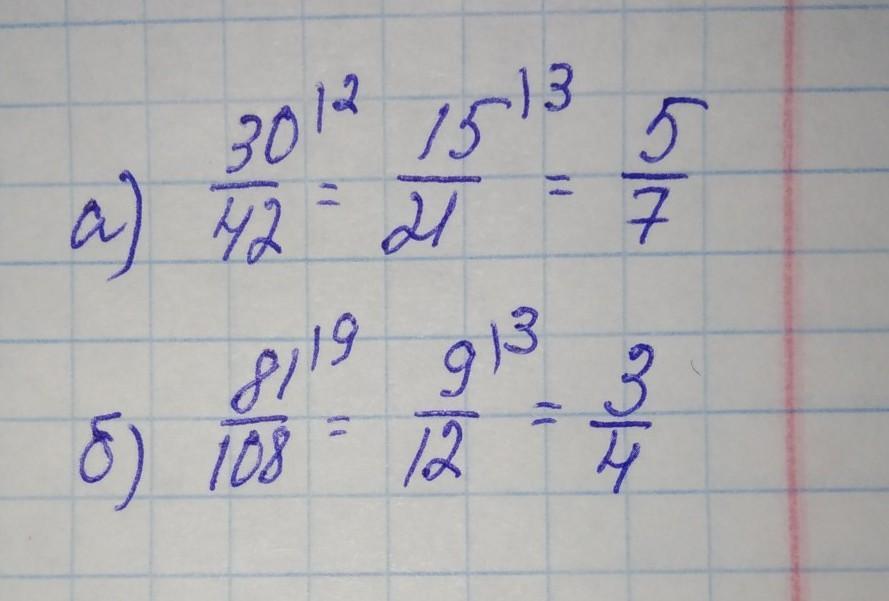 а) 30/42 |2 = 15/21 |3 = 5/7
б) 81/108 |9 = 9/12 |3 = 3/4